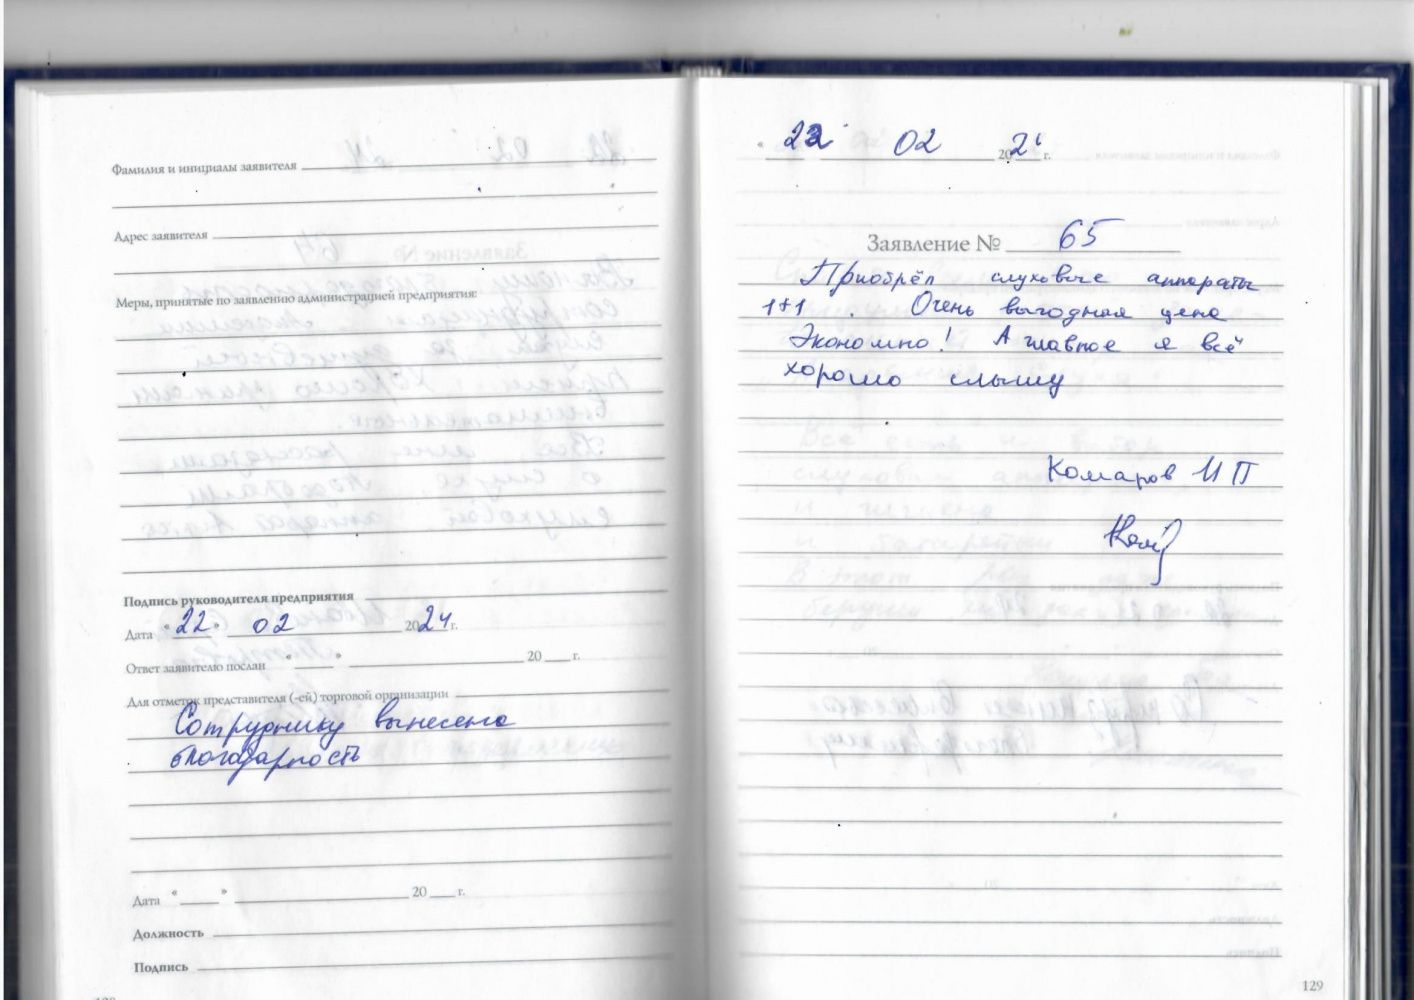 Фамилия и инициалы заявителя
Адрес заявителя
Меры, принятые по заявлению администрацией предприятия:
Подпись руководителя предприятия
Дата «22» 02 2024 г.
Ответ заявителю послан « » 20 г.
Для отметок представителя (-ей) торговой организации
Сотруднику вынесена
благодарность
Дата « » 20 г.
Должность
Подпись
« 02 20 г.
Заявление № 65
Приобрёл слуховые аппараты
1+1 . Очень выгодная цена
Экономно! А главное я всё
хорошо слышу
Комаров И П
129